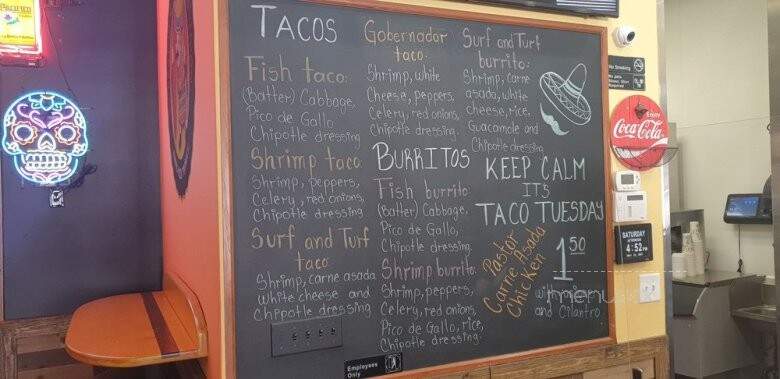 TACOS
Fish taco:
(Batter) Cabbage,
Pico de Gallo
Chipotle dressing
Shrimp taco
Shrimp, peppers,
Celery, red onions,
Chipotle dressing
Surf and Turf
taco
Shrimp, carne asada
white cheese and
Chipotle dressing
Gobernador
taco.
Shrimp, white
Cheese, peppers,
Celery, red onions,
Chipotle dressing.
BURRITOS
Fish burrito:
(Batter) Cabbage,
Pico de Gallo,
Chipotle dressing.
Shrimp burrito:
Shrimp, peppers,
Celery, red onions,
Pico de Gallo, rice,
Chipotle dressing.
Surf and Turf
burrito:
Shrimp, carne
asada, white
cheese, rice,
Guacamole and
Chipotle dressing
KEEP CALM
ITS
TACO TUESDAY
Pastor
Carne Asada
Chicken
1.50
with
and Cilantro
menu
Employees
Only
PACIFICO
No Smoking
Enjoy
Coca-Cola
SATURDAY
AFTERNOON
4:52 PM